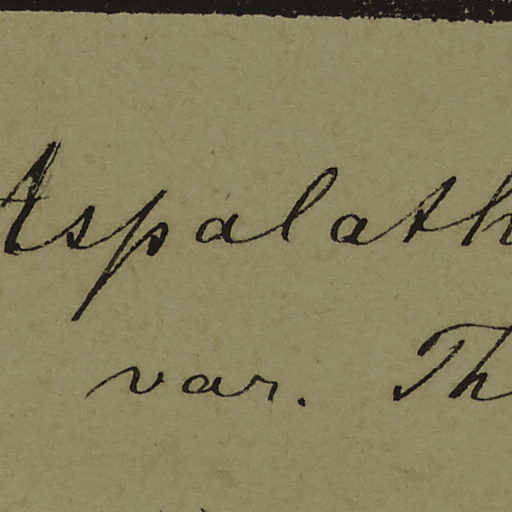 Aspalath
var. Th